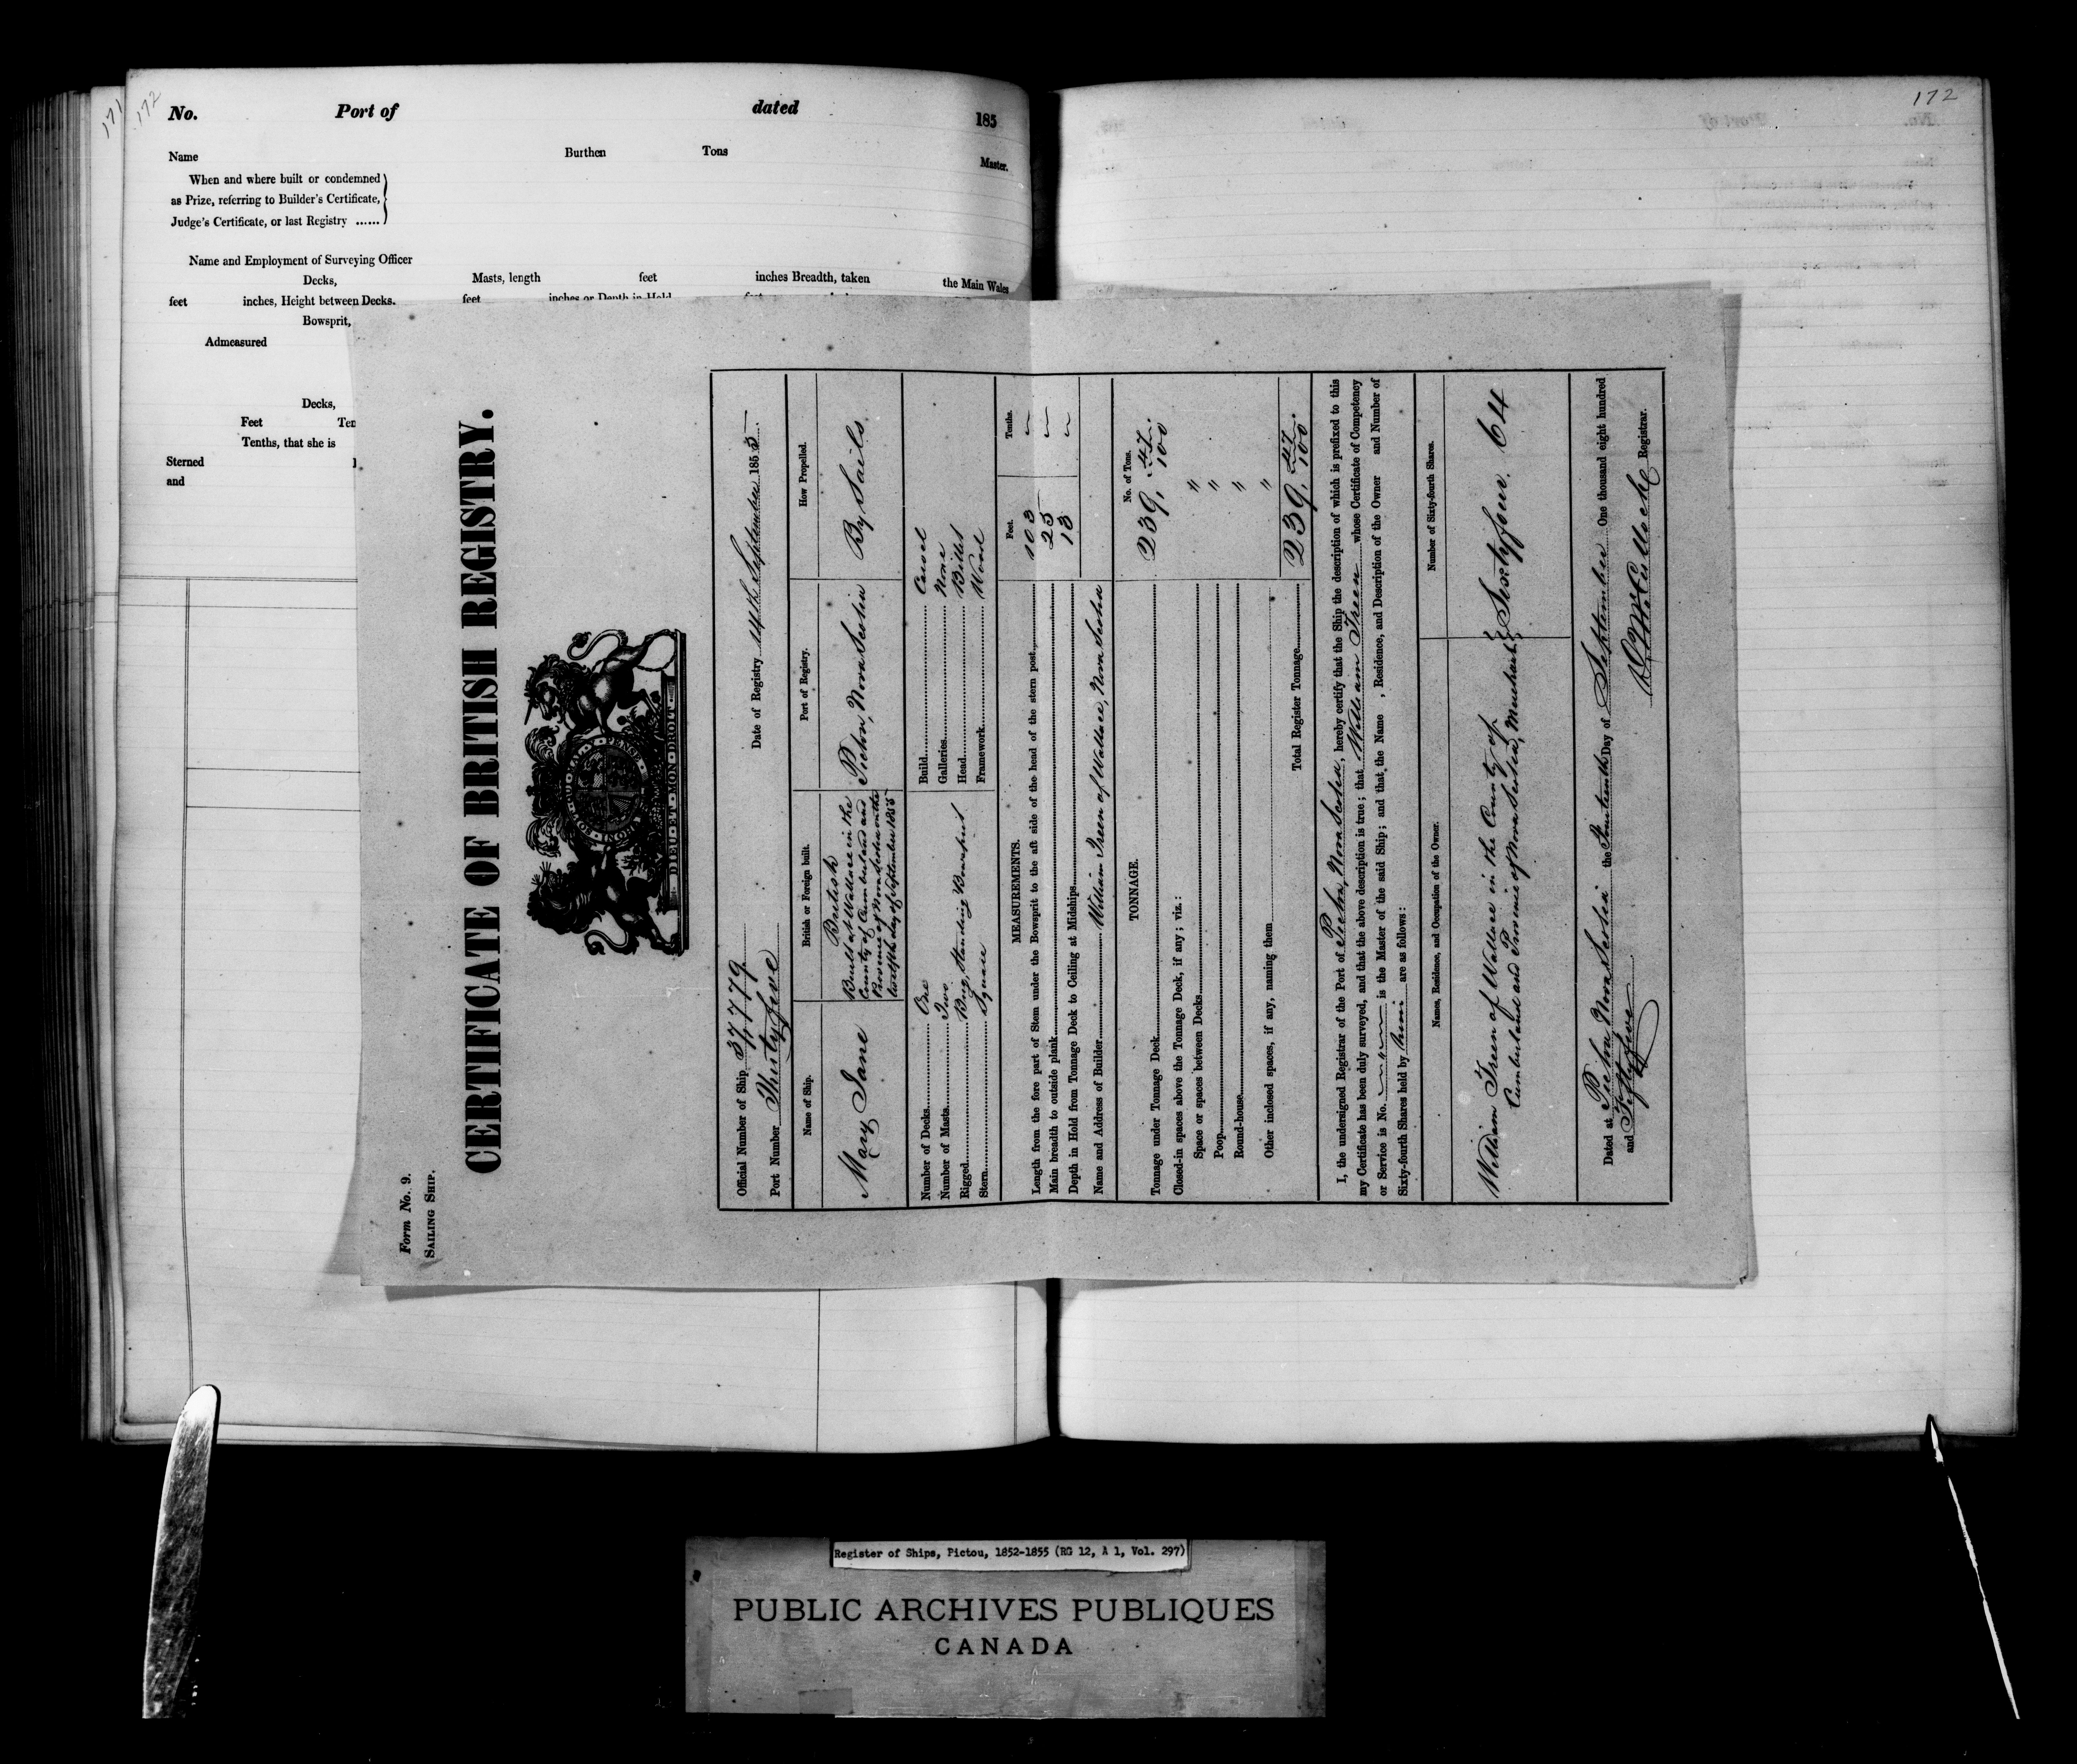 171
172
No. Port of dated 185
Name Burthen Tons Master.
When and where built or condemned
as Prize, referring to Builder's Certificate,
Judge's Certificate, or last Registry ......
Name and Employment of Surveying Officer
Decks, Masts, length feet inches Breadth, taken the Main Wales
feet inches, Height between Decks. feet inches or Depth in Hold
Bowsprit,
Admeasured
Decks,
Feet Ten
Tenths, that she is
Sterned
and
172
Form No. 9.
SAILING SHIP.
CERTIFICATE OF BRITISH REGISTRY.
HONI SOIT QUI MAL Y PENSE
DIEU ET MON DROIT
Official Number of Ship 37779 Date of Registry 14th September 1855.
Port Number Thirty five
Name of Ship. British or Foreign built. Port of Registry. How Propelled.
Mary Jane
British
Built at Wallace in the
County of Cumberland and
Province of Nova Scotia on the
twelfth day of September 1855
Pictou, Nova Scotia
By Sails
Number of Decks One Build Carvel
Number of Masts Two Galleries None
Rigged Brig, Standing Bowsprit Head Billet
Stern Square Framework Wood
MEASUREMENTS. Feet. Tenths.
Length from the fore part of Stem under the Bowsprit to the aft side of the head of the stern post 103
Main breadth to outside plank 25
Depth in Hold from Tonnage Deck to Ceiling at Midships 13
Name and Address of Builder William Treen of Wallace, Nova Scotia
TONNAGE. No. of Tons.
Tonnage under Tonnage Deck 239, 47/100
Closed-in spaces above the Tonnage Deck, if any; viz.:
Space or spaces between Decks "
Poop "
Round-house "
Other inclosed spaces, if any, naming them "
Total Register Tonnage 239, 47/100.
I, the undersigned Registrar of the Port of Pictou, Nova Scotia, hereby certify that the Ship the description of which is prefixed to this
my Certificate has been duly surveyed, and that the above description is true; that William Treen whose Certificate of Competency
or Service is No. is the Master of the said Ship; and that the Name , Residence, and Description of the Owner and Number of
Sixty-fourth Shares held by him are as follows:
Names, Residence, and Occupation of the Owner. Number of Sixty-fourth Shares.
William Treen of Wallace in the County of
Cumberland and Province of Nova Scotia, Merchant
Sixty four. 64
Dated at Pictou Nova Scotia the Fourteenth Day of September One thousand eight hundred
and Fifty five
Registrar.
Register of Ships, Pictou, 1852-1855 (RG 12, A 1, Vol. 297)
PUBLIC ARCHIVES PUBLIQUES
CANADA